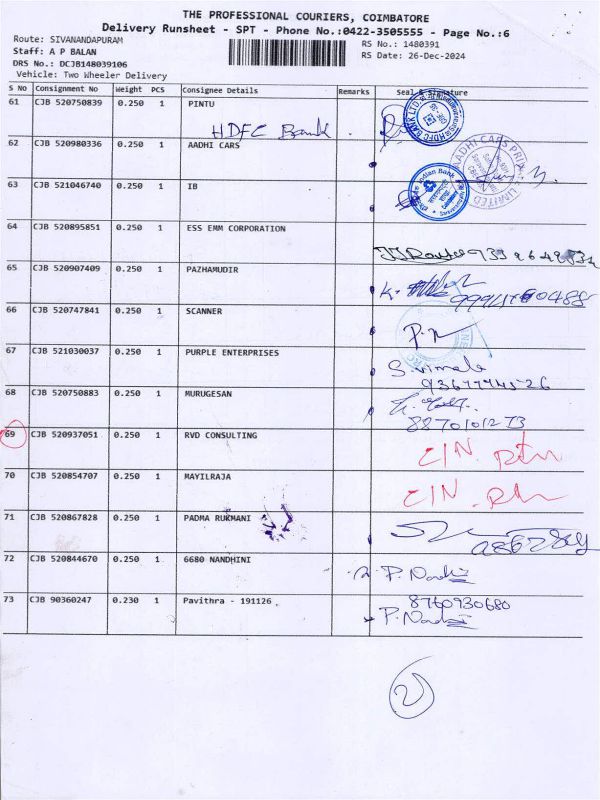 THE PROFESSIONAL COURIERS, COIMBATORE
Delivery Runsheet - SPT - Phone No.:0422-3505555 - Page No.:6
Route: SIVANANDAPURAM
RS No.: 1480391
Staff: A P BALAN
RS Date: 26-Dec-2024
DRS No.: DCJB148039106
Vehicle: Two Wheeler Delivery
S No Consignment No Weight PCS Consignee Details Remarks Seal & Signature
61 CJB 520750839 0.250 1 PINTU
HDFC Bank.
62 CJB 520980336 0.250 1 AADHI CARS
63 CJB 521046740 0.250 1 IB
64 CJB 520895851 0.250 1 ESS EMM CORPORATION
65 CJB 520907409 0.250 1 PAZHAMUDIR
66 CJB 520747841 0.250 1 SCANNER
67 CJB 521030037 0.250 1 PURPLE ENTERPRISES
S. vimala
68 CJB 520750883 0.250 1 MURUGESAN
69 CJB 520937051 0.250 1 RVD CONSULTING
C/N. Rtn
70 CJB 520854707 0.250 1 MAYILRAJA
C/N. Rtn
71 CJB 520867828 0.250 1 PADMA RUKMANI
72 CJB 520844670 0.250 1 6680 NANDHINI
P. Nandhi
73 CJB 90360247 0.230 1 Pavithra - 191126
8760930680
P. Nandhi